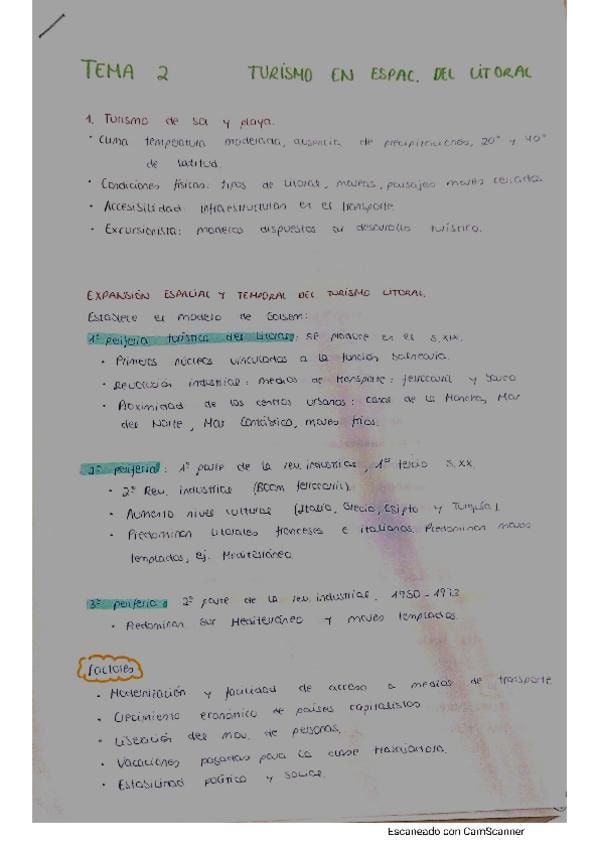 TEMA 2 TURISMO EN ESPAC. DEL LITORAL
1. Turismo de sol y playa.
· Clima temperatura moderada, ausencia de precipitaciones, 20° y 40°
de latitud.
· Condiciones físicas: tipos de litoral, mareas, paisajes mares cerrados.
· Accesibilidad infraestructuras en el transporte.
· Excursionista: maneras dispuestas al desarrollo turístico.
EXPANSIÓN ESPACIAL Y TEMPORAL DEL TURISMO LITORAL.
Establece el modelo de Gorsem:
1ª periferia turística del litoral: se produce en el s.XIX.
· Primeros núcleos vinculados a la función balnearia.
· Revolución industrial: medios de transporte: ferrocarril y barco
· Proximidad de los centros urbanos: canal de la Mancha, Mar
del Norte, Mar Cantábrico, mares fríos.
2ª periferia: 1ª parte de la rev. industrial, 1º tercio s.XX.
· 2ª Rev. industrial (Boom ferrocarril).
· Aumento nivel cultural (Italia, Grecia, Egipto y Turquía).
· Predominan litorales franceses e italianos. Predominan mares
templados, ej. Mediterráneo.
3ª periferia: 2ª parte de la rev. industrial. 1950-1973
· Predominan sur Mediterráneo y mares templados.
factores
· Modernización y facilidad de acceso a medios de transporte
· Crecimiento económico de países capitalistas
· del mov. de personas.
· Vacaciones pagadas para la clase trabajadora.
· Estabilidad política y social.
Escaneado con CamScanner